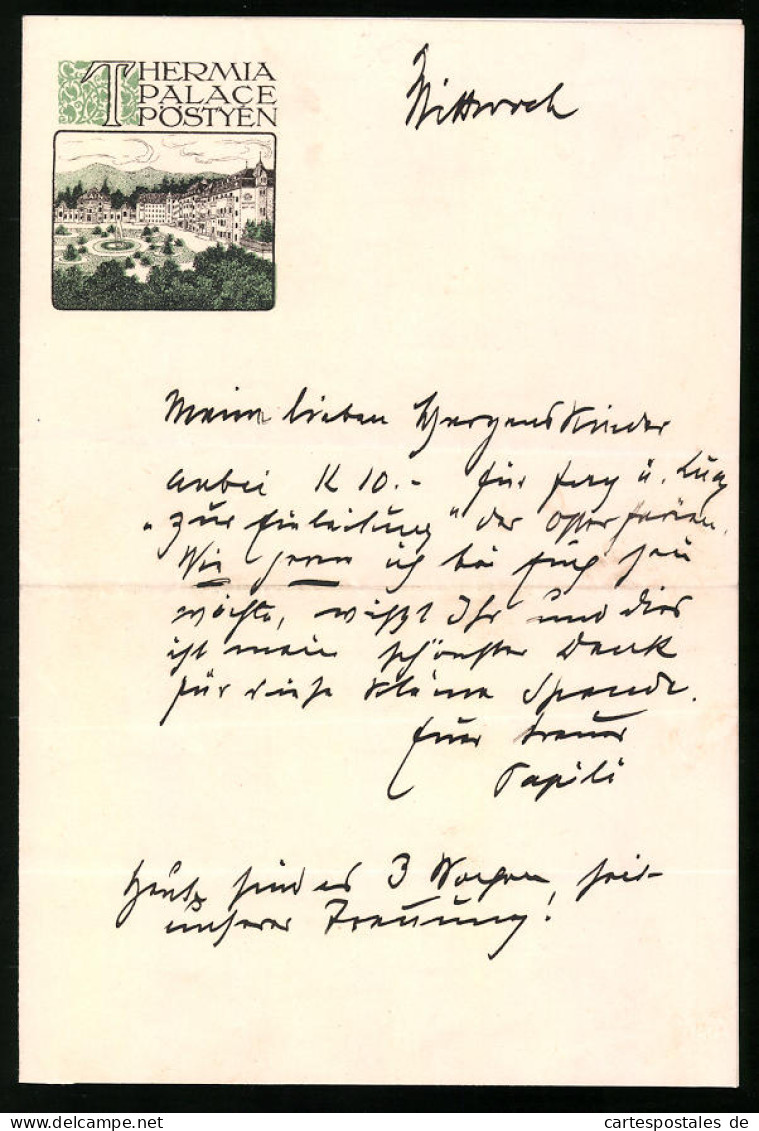 THERMIA
PALACE
PÖSTYÉN
Mittwoch
Meine lieben Herzenskinder
anbei K 10.- für u.
"zur Einleitung" der Osterferien.
Wie gern ich bei Euch sein
möchte, wißt Ihr und dies
ist mein schönster Dank
für diese kleine Spende.
Euer treuer
Papili
Heute sind es 3 Wochen seit
unserer Trauung!
cartespostales de